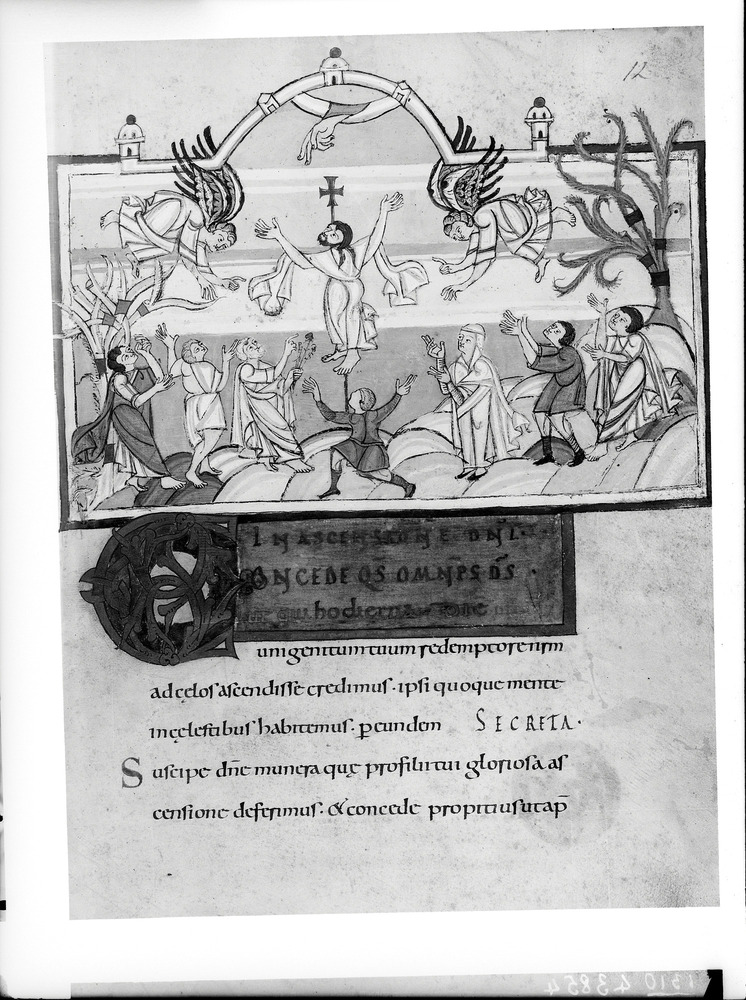 12
IN ASCENSIONE DNI.
CONCEDE QS OMNPS DS.
ut qui hodierna die
unigenitum tuum redemptorem nrm
ad cęlos ascendisse credimus. ipsi quoque mente
in cęlestibus habitemus. p eundem SECRETA.
Suscipe dne munera quę pro filii tui gloriosa as
censione deferimus. & concede propitius ut a p̄
1310 43854